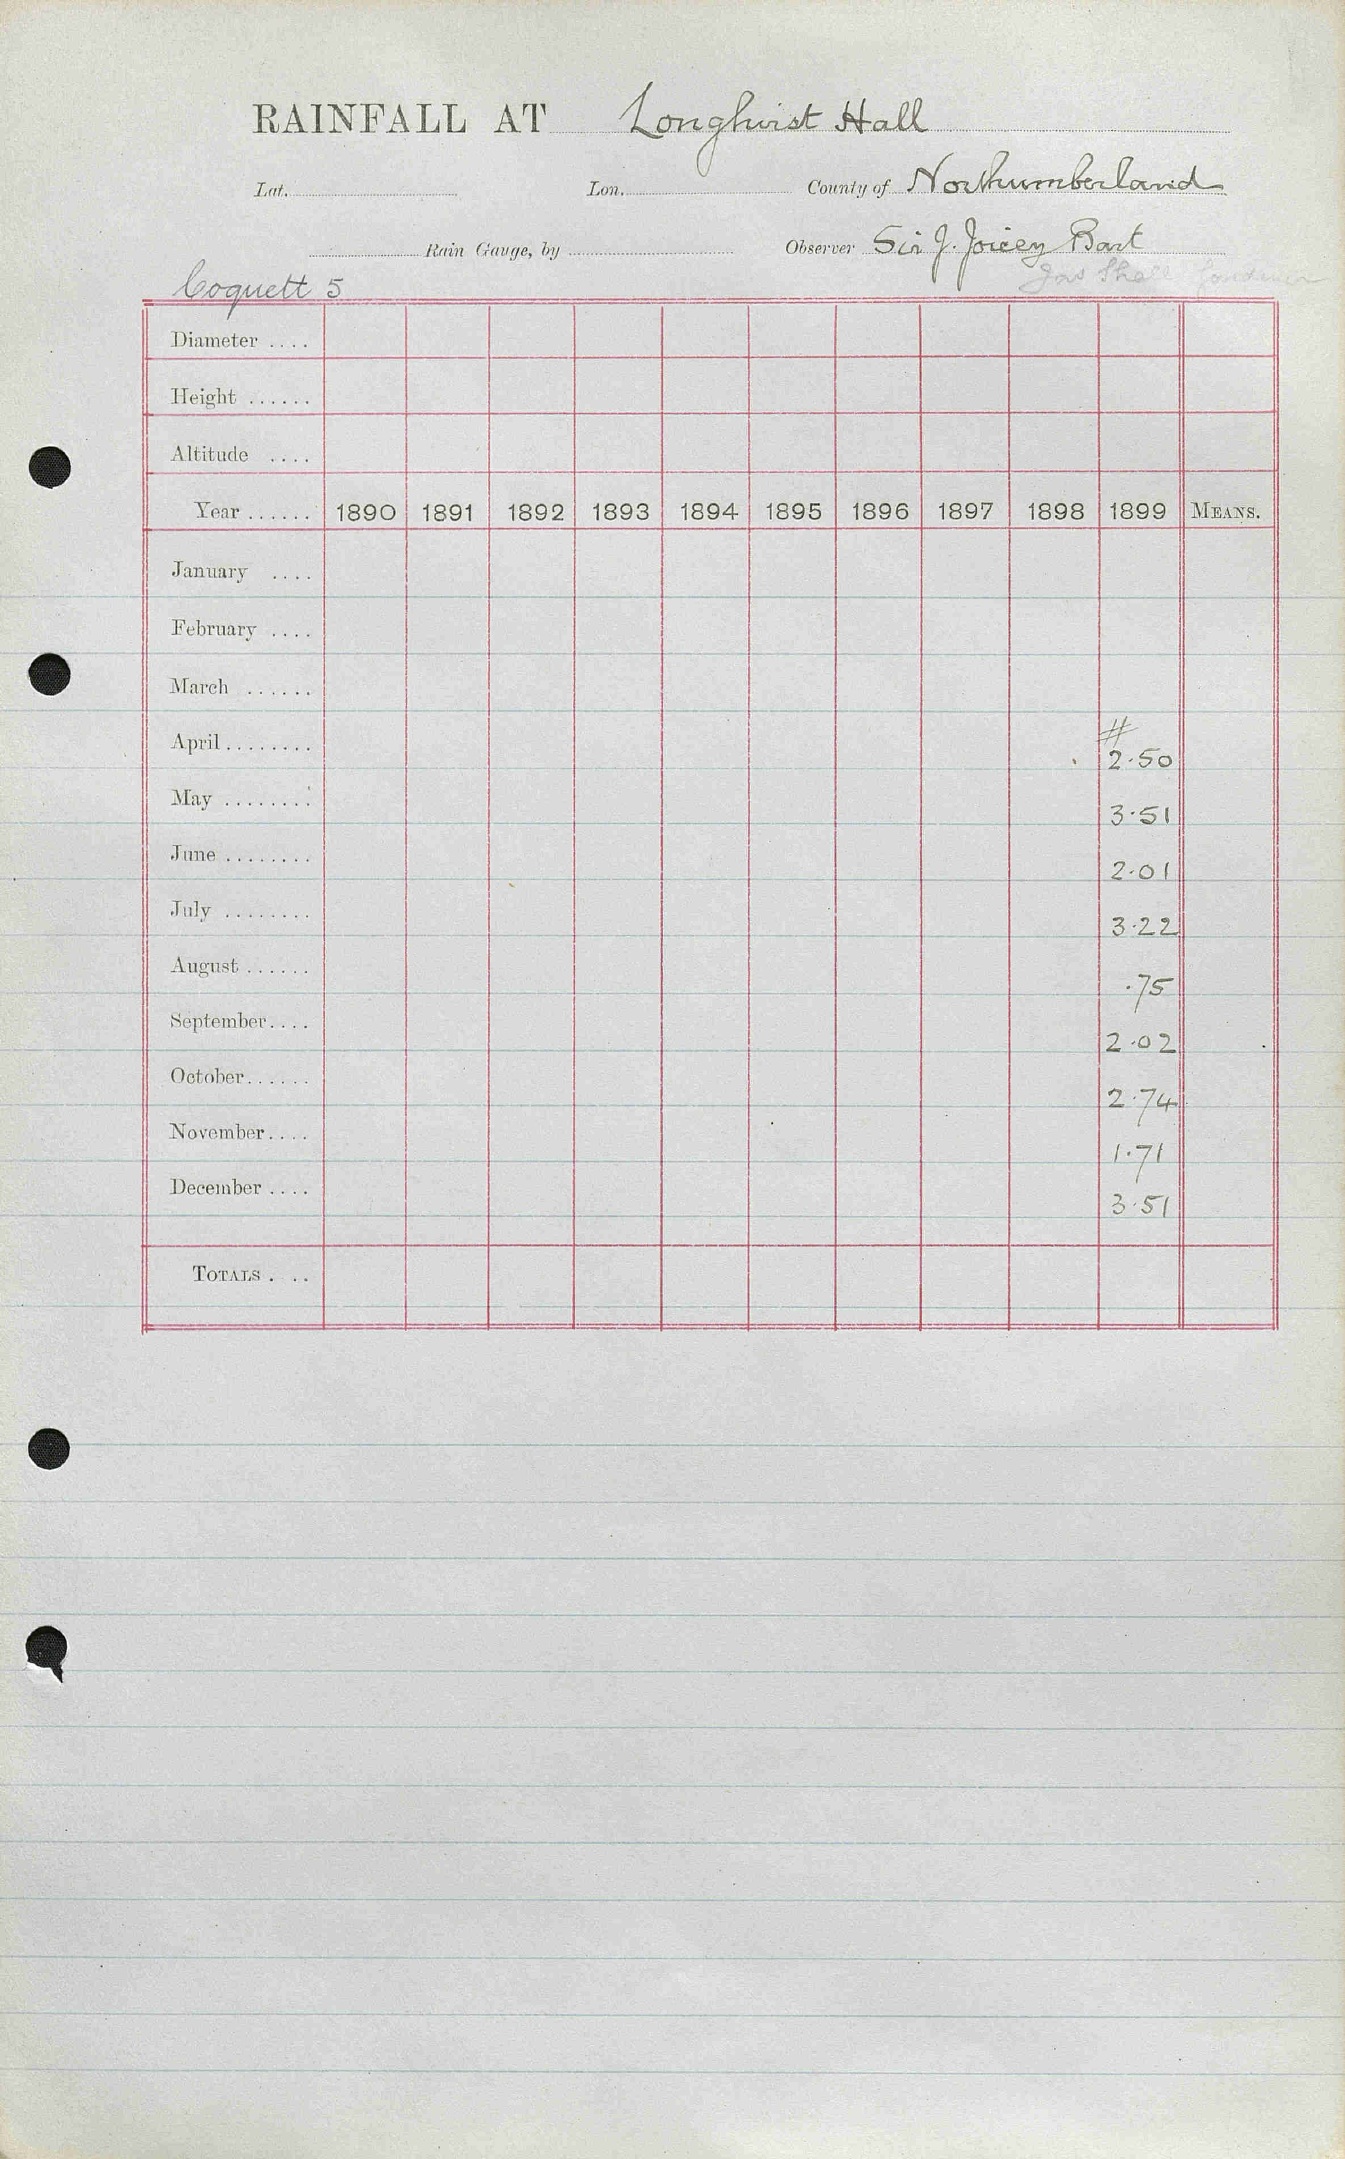 RAINFALL AT Longhirst Hall
Lat. Lon. County of Northumberland
Rain Gauge, by Observer Sir J. Joicey Bart
Coquett 5 Jas
Diameter ....
Height ......
Altitude ....
Year ...... 1890 1891 1892 1893 1894 1895 1896 1897 1898 1899 MEANS.
January ....
February ....
March ......
#
April ........ 2.50
May ........ 3.51
June ........ 2.01
July ........ 3.22
August ...... .75
September.... 2.02
October...... 2.74
November.... 1.71
December .... 3.51
TOTALS . ..